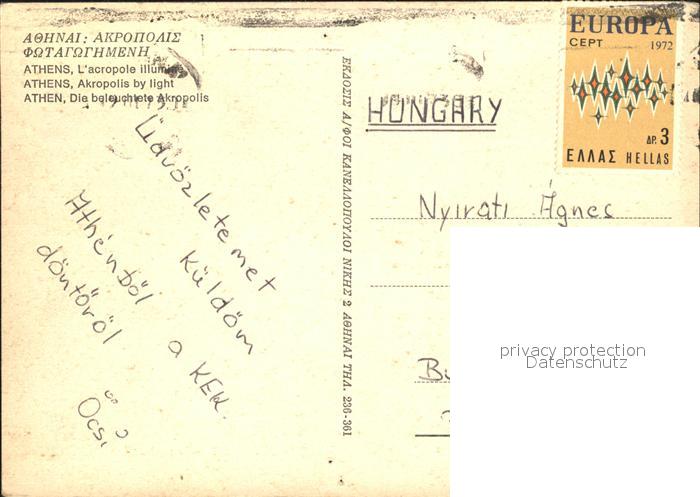 ΑΘΗΝΑΙ: ΑΚΡΟΠΟΛΙΣ
ΦΩΤΑΓΩΓΗΜΕΝΗ
ATHENS, L'acropole illuminé
ATHENS, Akropolis by light
ATHEN, Die beleuchtete Akropolis
Üdvözletemet
küldöm
Athénből a KEK.
döntőről
Öcsi
ΕΚΔΟΣΙΣ Α/ΦΟΙ ΚΑΝΕΛΛΟΠΟΥΛΟΙ ΝΙΚΗΣ 2 ΑΘΗΝΑΙ ΤΗΛ. 236-361
EUROPA
CEPT 1972
ΔΡ. 3
ΕΛΛΑΣ HELLAS
HUNGARY
Nyirati Ágnes
privacy protection
Datenschutz